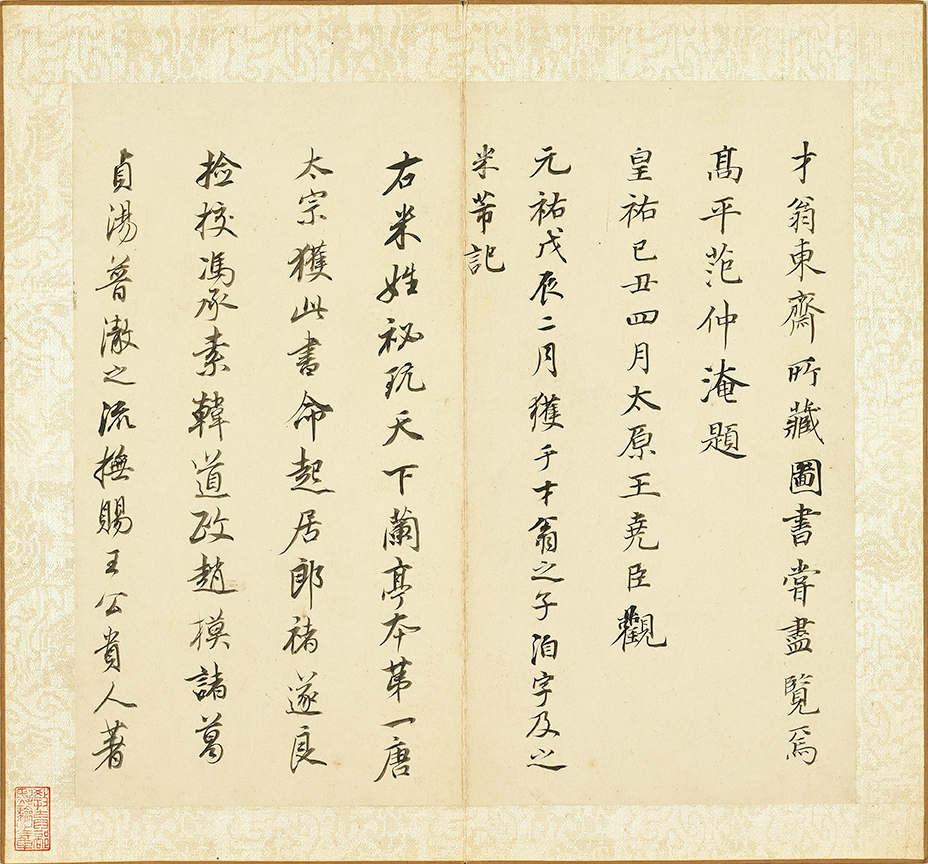 才翁東齋所藏圖書嘗盡覽焉
高平范仲淹題
皇祐己丑四月太原王堯臣觀
元祐戊辰二月獲于才翁之子洎字及之
米芾記
右米姓祕玩天下蘭亭本第一唐
太宗獲此書命起居郎褚遂良
撿挍馮承素韓道政趙摸諸葛
貞湯普澈之流摸賜王公貴人著